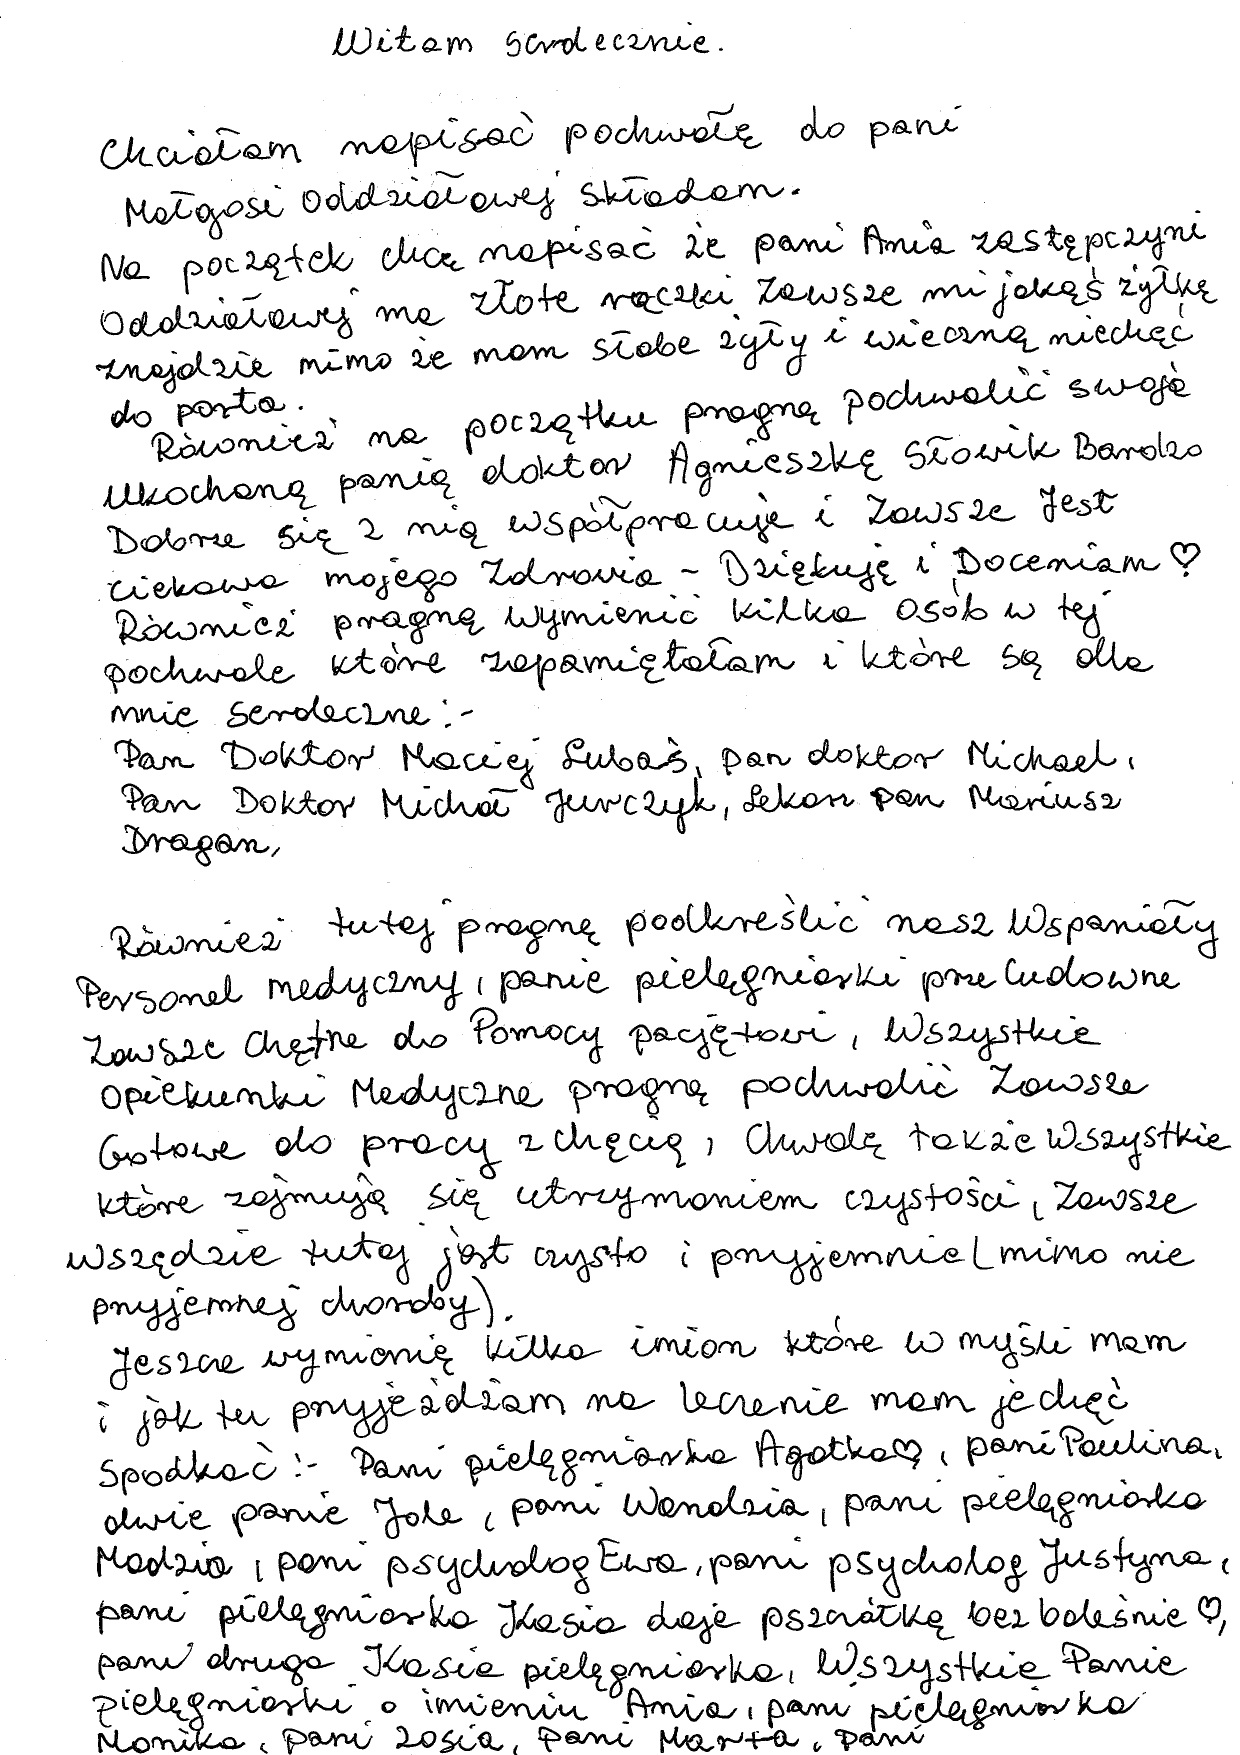 Witam serdecznie.
Chciałam napisać pochwałę do pani
Małgosi Oddziałowej składam.
Na początek chcę napisać że pani Ania zastępczyni
Oddziałowej ma złote rączki Zawsze mi jakąś żyłkę
znajdzie mimo że mam słabe żyły i wieczną niechęć
do porta.
Również na początku pragnę pochwalić swoją
Ukochaną panią doktor Agnieszkę Słowik Bardzo
Dobrze się z nią współpracuje i Zawsze Jest
ciekawa mojego Zdrowia - Dziękuję i Doceniam ♡
Również pragnę wymienić kilka osób w tej
pochwale które zapamiętałam i które są dla
mnie serdeczne :-
Pan Doktor Maciej Lubaś, pan doktor Michael,
Pan Doktor Michał Jurczyk, Lekarz pan Mariusz
Dragan,
Również tutaj pragnę podkreślić nasz Wspaniały
Personel medyczny, panie pielęgniarki prze Cudowne
Zawsze Chętne do Pomocy pacjętowi, Wszystkie
Opiekunki Medyczne pragnę pochwalić Zawsze
Gotowe do pracy z chęcią, Chwalę także Wszystkie
które zajmują się utrzymaniem czystości, Zawsze
Wszędzie tutaj jest czysto i przyjemnie (mimo nie
przyjemnej choroby).
Jeszcze wymienię kilka imion które w myśli mam
i jak tu przyjeżdżam na leczenie mam je chęć
Spodkać :- Pani pielęgniarka Agatka♡, pani Paulina,
dwie panie Jole, pani Wandzia, pani pielęgniarka
Madzia, pani psycholog Ewa, pani psycholog Justyna,
pani pielęgniarka Kasia daje pszczółkę bez boleśnie ♡,
pani druga Kasia pielęgniarka, Wszystkie Panie
pielęgniarki o imieniu Ania, pani pielęgniarka
Monika, pani Zosia, Pani Marta, pani